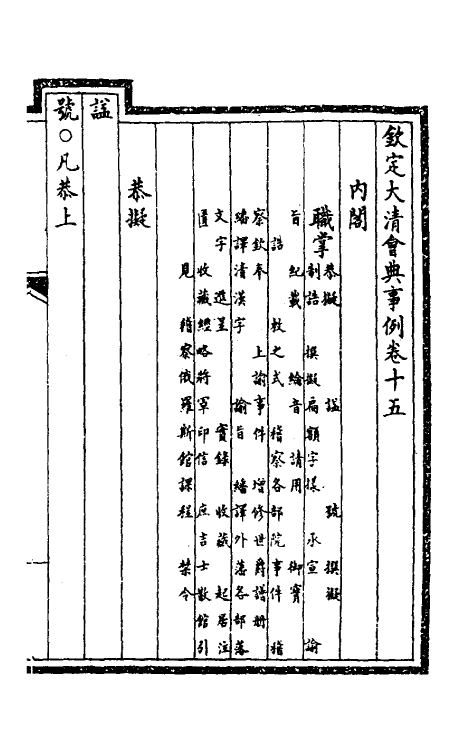 欽定大清會典事例卷十五
內閣
職掌
恭擬 諡 號 撰擬
制誥 撰擬扁額字樣 承宣 諭
旨 紀載 綸音 請用 御寶
誥 敕之式 稽察各部院事件 稽
察欽奉 上諭事件 增修世爵譜冊
繙譯清漢字 諭旨 繙譯外藩各部落
文字 進呈 實錄 收藏 起居注
匱 收藏經略將軍印信 庶吉士散館引
見 稽察俄羅斯館課程 禁令
恭擬
諡
號○凡恭上